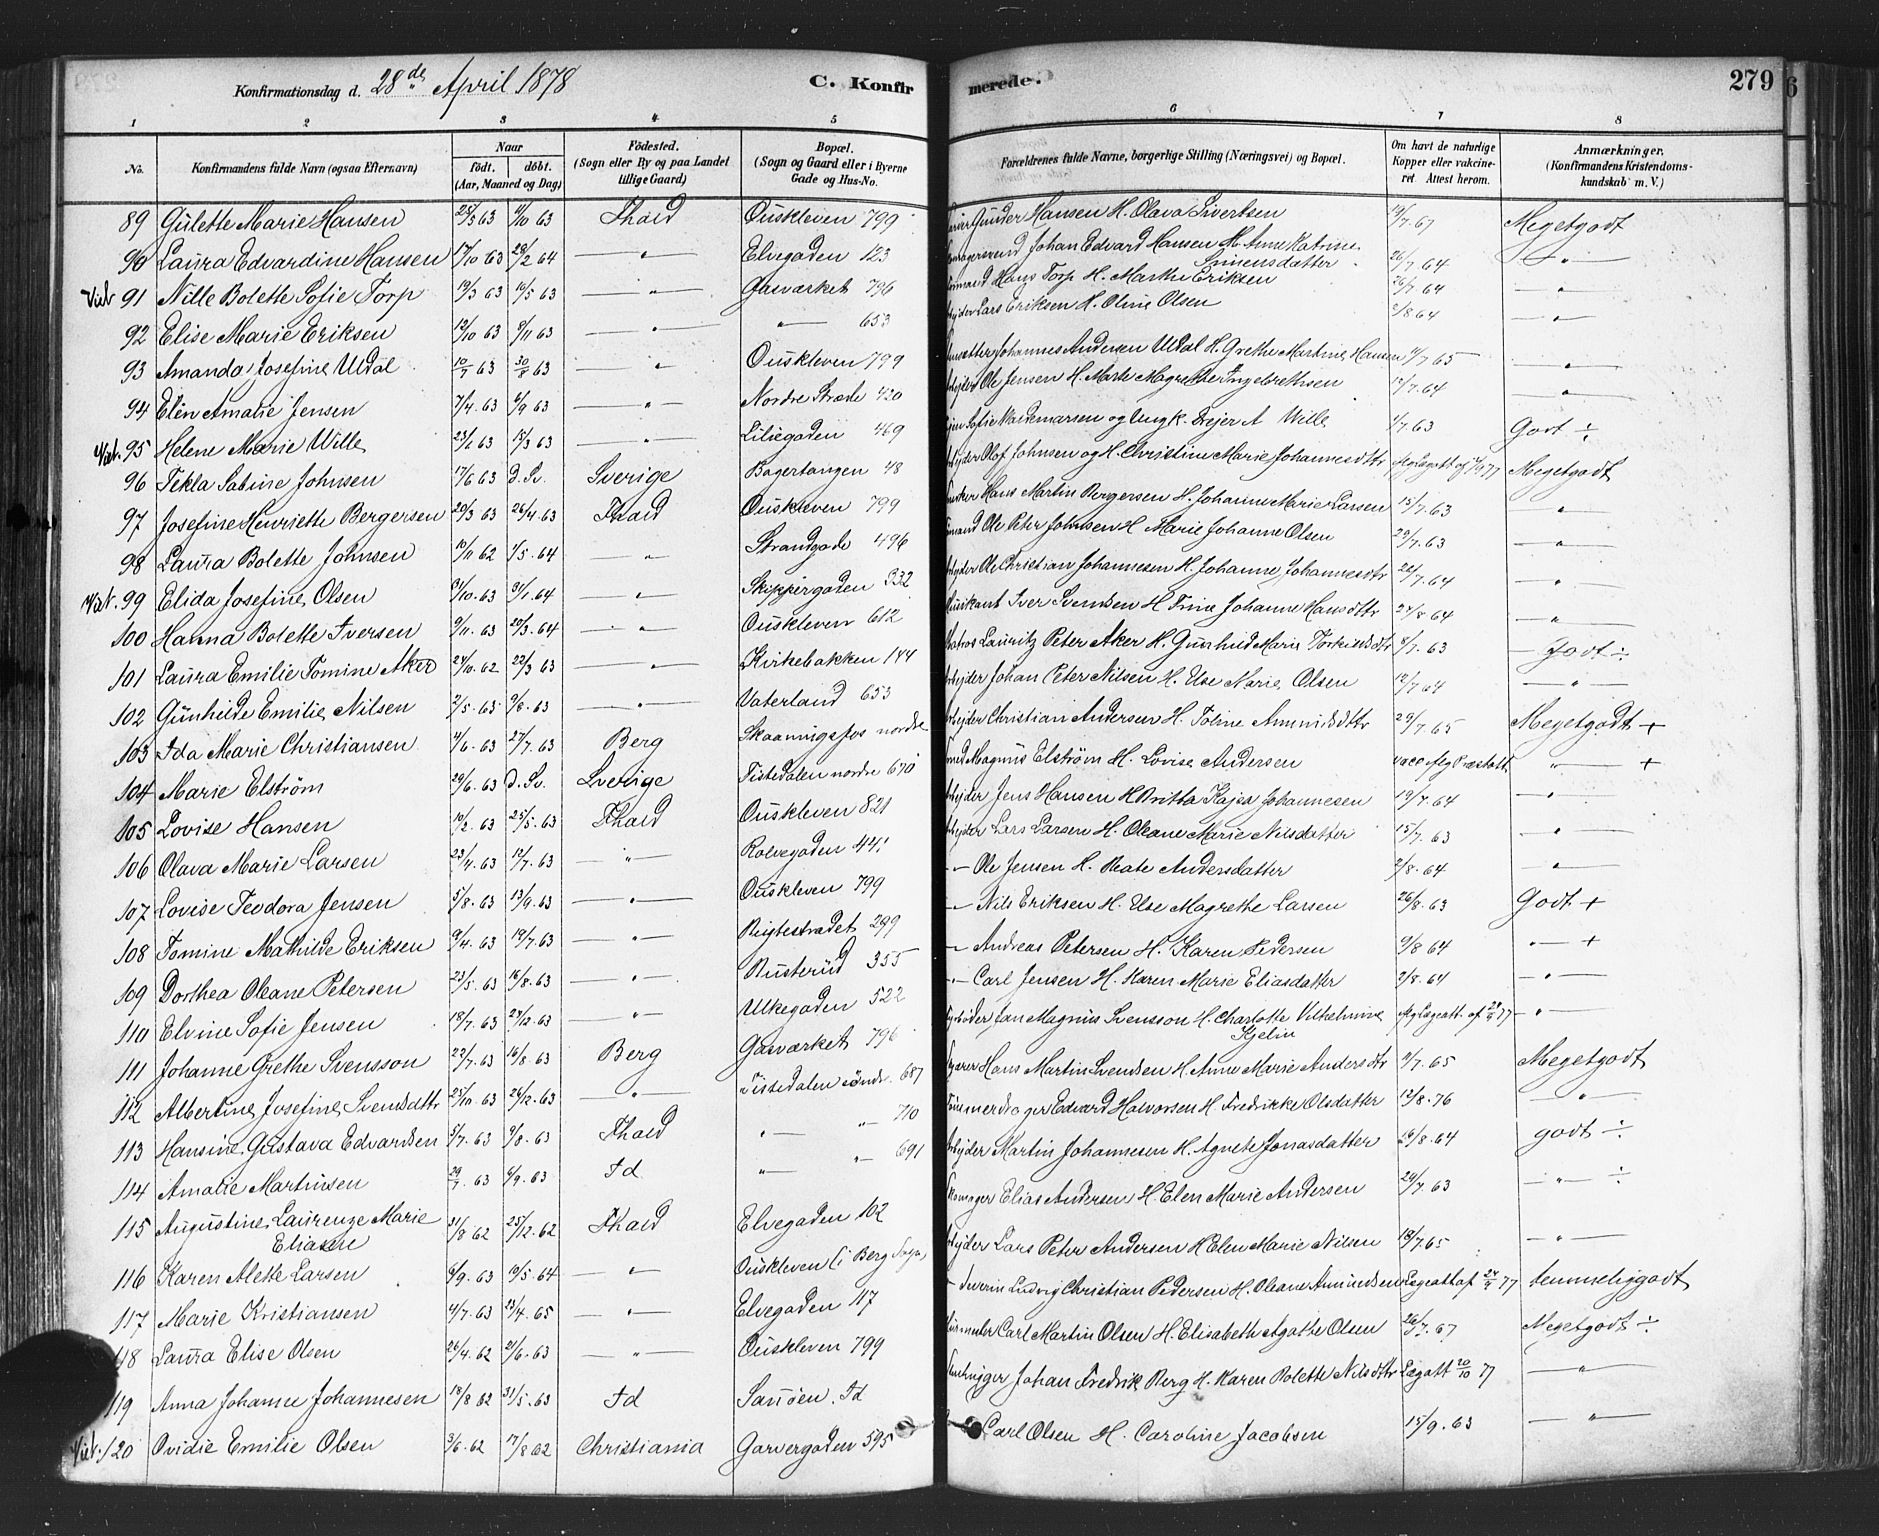 Konfirmationsdag d. 28de April 1878 C. Konfirmerede. 279
1 2 3 4 5 6 7 8
No. Konfirmandens fulde Navn (ogsaa Efternavn) Naar født. døbt. (Aar, Maaned og Dag) Födested. (Sogn eller By og paa Landet tillige Gaard) Bopæl. (Sogn og Gaard eller i Byerne Gade og Hus-No. Forældrenes fulde Navne, borgerlige Stilling (Næringsvei) og Bopæl. Om havt de naturlige Kopper eller vakcineret Attest herom. Anmærkninger. (Konfirmandens Kristendomskundskab m. V.)
89 Gulette Marie Hansen 25/3 63 4/10 63 Fhald Ouskleven 799 Gunder Hansen H. Olava Sivertsen 19/7.67 Megetgodt
90 Laura Edvardine Hansen 17/10 63 28/2 64 " Elvegaden 123 Johan Edvard Hansen H. Anne Katrine Simensdatter 26/7 64 "
91 Nille Bolette Sofie Torp 19/3 63 10/5 63 " Gasværket 796 Hans Torp H. Marthe Eriksen 26/7 64 "
92 Elise Marie Eriksen 12/10 63 8/11 63 " " 653 Lars Eriksen H. Oline Olsen 2/8 64 "
93 Amanda Josefine Udal 10/7 63 30/8 63 " Ouskleven 799 Johannes Andersen Udal H. Grethe Martine Hansen 4/7 65 "
94 Elen Amalie Jensen 7/4. 63 6/9 63 " Nordre Stræde 420 Ole Jensen H. Marte Magrethe Ingebrethsen 12/7.64 "
95 Helene Marie Wille 23/1 63 15/3 63 " Liliegaden 469 Sofie Waldemarsen og Ungk. Drejer A Wille 4/7 63 Godt ÷
96 Tekla Sabine Johnsen 17/6 63 d. Sv. Sverige Bagertangen 48 Olof Johnsen og H. Christine Marie Johannesdtr Megetgodt
97 Josefine Henriette Bergersen 20/3 63 26/4 63 Fhald Ouskleven 799 Hans Martin Bergersen H. Johanne Marie Larsen 15/7.63 "
98 Laura Bolette Johnsen 10/11 62 1/5. 64 " Strandgade 496 Ole Peter Johnsen H Marie Johanne Olsen 29/7.63 "
99 Elida Josefine Olsen 31/10.63 31/1 64 " Skippergaden 332 Ole Christian Johannesen H. Johanne Johannesdtr 26/7 64 "
100 Hanna Bolette Iversen 9/11. 63 20/3. 64 " Ouskleven 612 Musikant Iver Svendsen H Trine Johanne Hansdttr 24/8 64 "
101 Laura Emilie Tomine Aker 24/10. 62 22/3 63 " Kirkebakken 144 Matros Lauritz Peter Aker H. Gunhild Marie Torkildsdtr 8/7. 63 Godt ÷
102 Gunhilde Emilie Nilsen 2/5. 63 9/8. 63 " Vaterland 653 Johan Peter Nilsen H. Else Marie Olsen 12/7 64 "
103 Ida Marie Christiansen 4/6. 63 27/7. 63 Berg Skaaningsfos nordre Christian Andersen H. Toline 29/7. 65 Megetgodt +
104 Marie Elström 29/6. 63 d. Sv. Sverige Tistedalen nordre 670 Magnus Elström H. Lovise Andersen " +
105 Lovise Hansen 10/2. 63 25/5. 63 Fhald Ouskleven 821 Jens Hansen H Britta Kajsa Johannesen 19/7. 64 "
106 Olava Marie Larsen 23/4. 63 12/7. 63 " Rolvegaden 44. Lars Larsen H. Oleane Marie Nilsdatter 15/7. 63 "
107 Lovise Teodora Jensen 5/8. 63 13/9. 63 " Ouskleven 799 Ole Jensen H. Beate Andersdatter 2/8. 64 "
108 Tomine Mathilde Eriksen 9/4. 63 19/7. 63 " 299 Nils Eriksen H. Else Magrethe Larsen 26/8. 63 Godt +
109 Dorthea Oleane Petersen 23/5. 63 16/8. 63 " Busterud 355 Andreas Petersen H. Karen Pedersen 9/8 64 " +
110 Elvine Sofie Jensen 18/7. 63 27/12. 63 " Ulkegaden 522 Carl Jensen H. Karen Marie Eliasdatter 2/8. 64 "
111 Johanne Grethe Svensson 22/7. 63 16/8. 63 Berg Gasværket 796 Jan Magnus Svensson H. Charlotte Vilhelmine Kjelin "
112 Albertine Josefine Svensdttr 25/10. 63 26/12. 63 " Tistedalen søndr. 687 Hans Martin Svendsen H. Anne Marie Andersdtr 9/7. 65 Megetgodt
113 Hansine Gustava Edvardsen 5/7. 63 9/8. 63 Fhald " " 710 Edvard Halvorsen H. Fredrikke Olsdatter 12/8. 76 "
114 Amalie Martinsen 29/7. 63 6/9. 63 Id " " 691 Martin Johannesen H. Agnete Jonasdatter 16/8. 64 godt ÷
115 Augustine Laurenze Marie Eliasen 31/8 62 25/12. 62 Fhald Elvegaden 102 Elias Andersen H. Elen Marie Andersen 20/7. 63 " ÷
116 Karen Alette Larsen 6/9. 63 10/5. 64 " Ouskleven (i Berg Sogn) Lars Peter Andersen H Elen Marie Nilsen 18/7.65 "
117 Marie Kristiansen 4/7. 63 23/4. 65 " Elvegaden 117 Severin Ludvig Christian Pedersen H. Oleane Amundsen Lægeatt af 24/9 77 temmeliggodt
118 Laura Elise Olsen 26/4. 62 21/6. 63 " Ouskleven 799 Carl Martin Olsen H. Elisabeth Agathe Olsen 26/7. 67 Megetgodt ÷
119 Anna Johanne Johannesen 18/8 62 31/5. 63 Id Sauöen. Id Johan Fredrik Berg H. Karen Bolette Nilsdttr Lægatt 20/10 77 "
120 Ovidie Emilie Olsen 3/6. 62 17/8 62 Christiania Garvergaden 595 Carl Olsen H. Caroline Jacobsen 15/9. 63 "